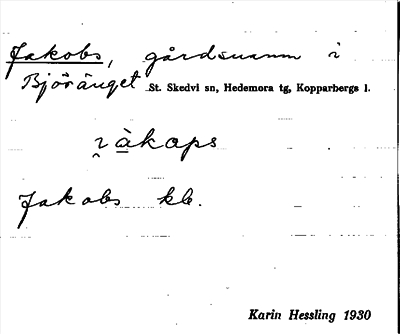 Jakobs, gårdsnamn i
Björänget St. Skedvi sn, Hedemora tg, Kopparbergs l.
i̯àkops
Jakobs kb.
Karin Hessling 1930